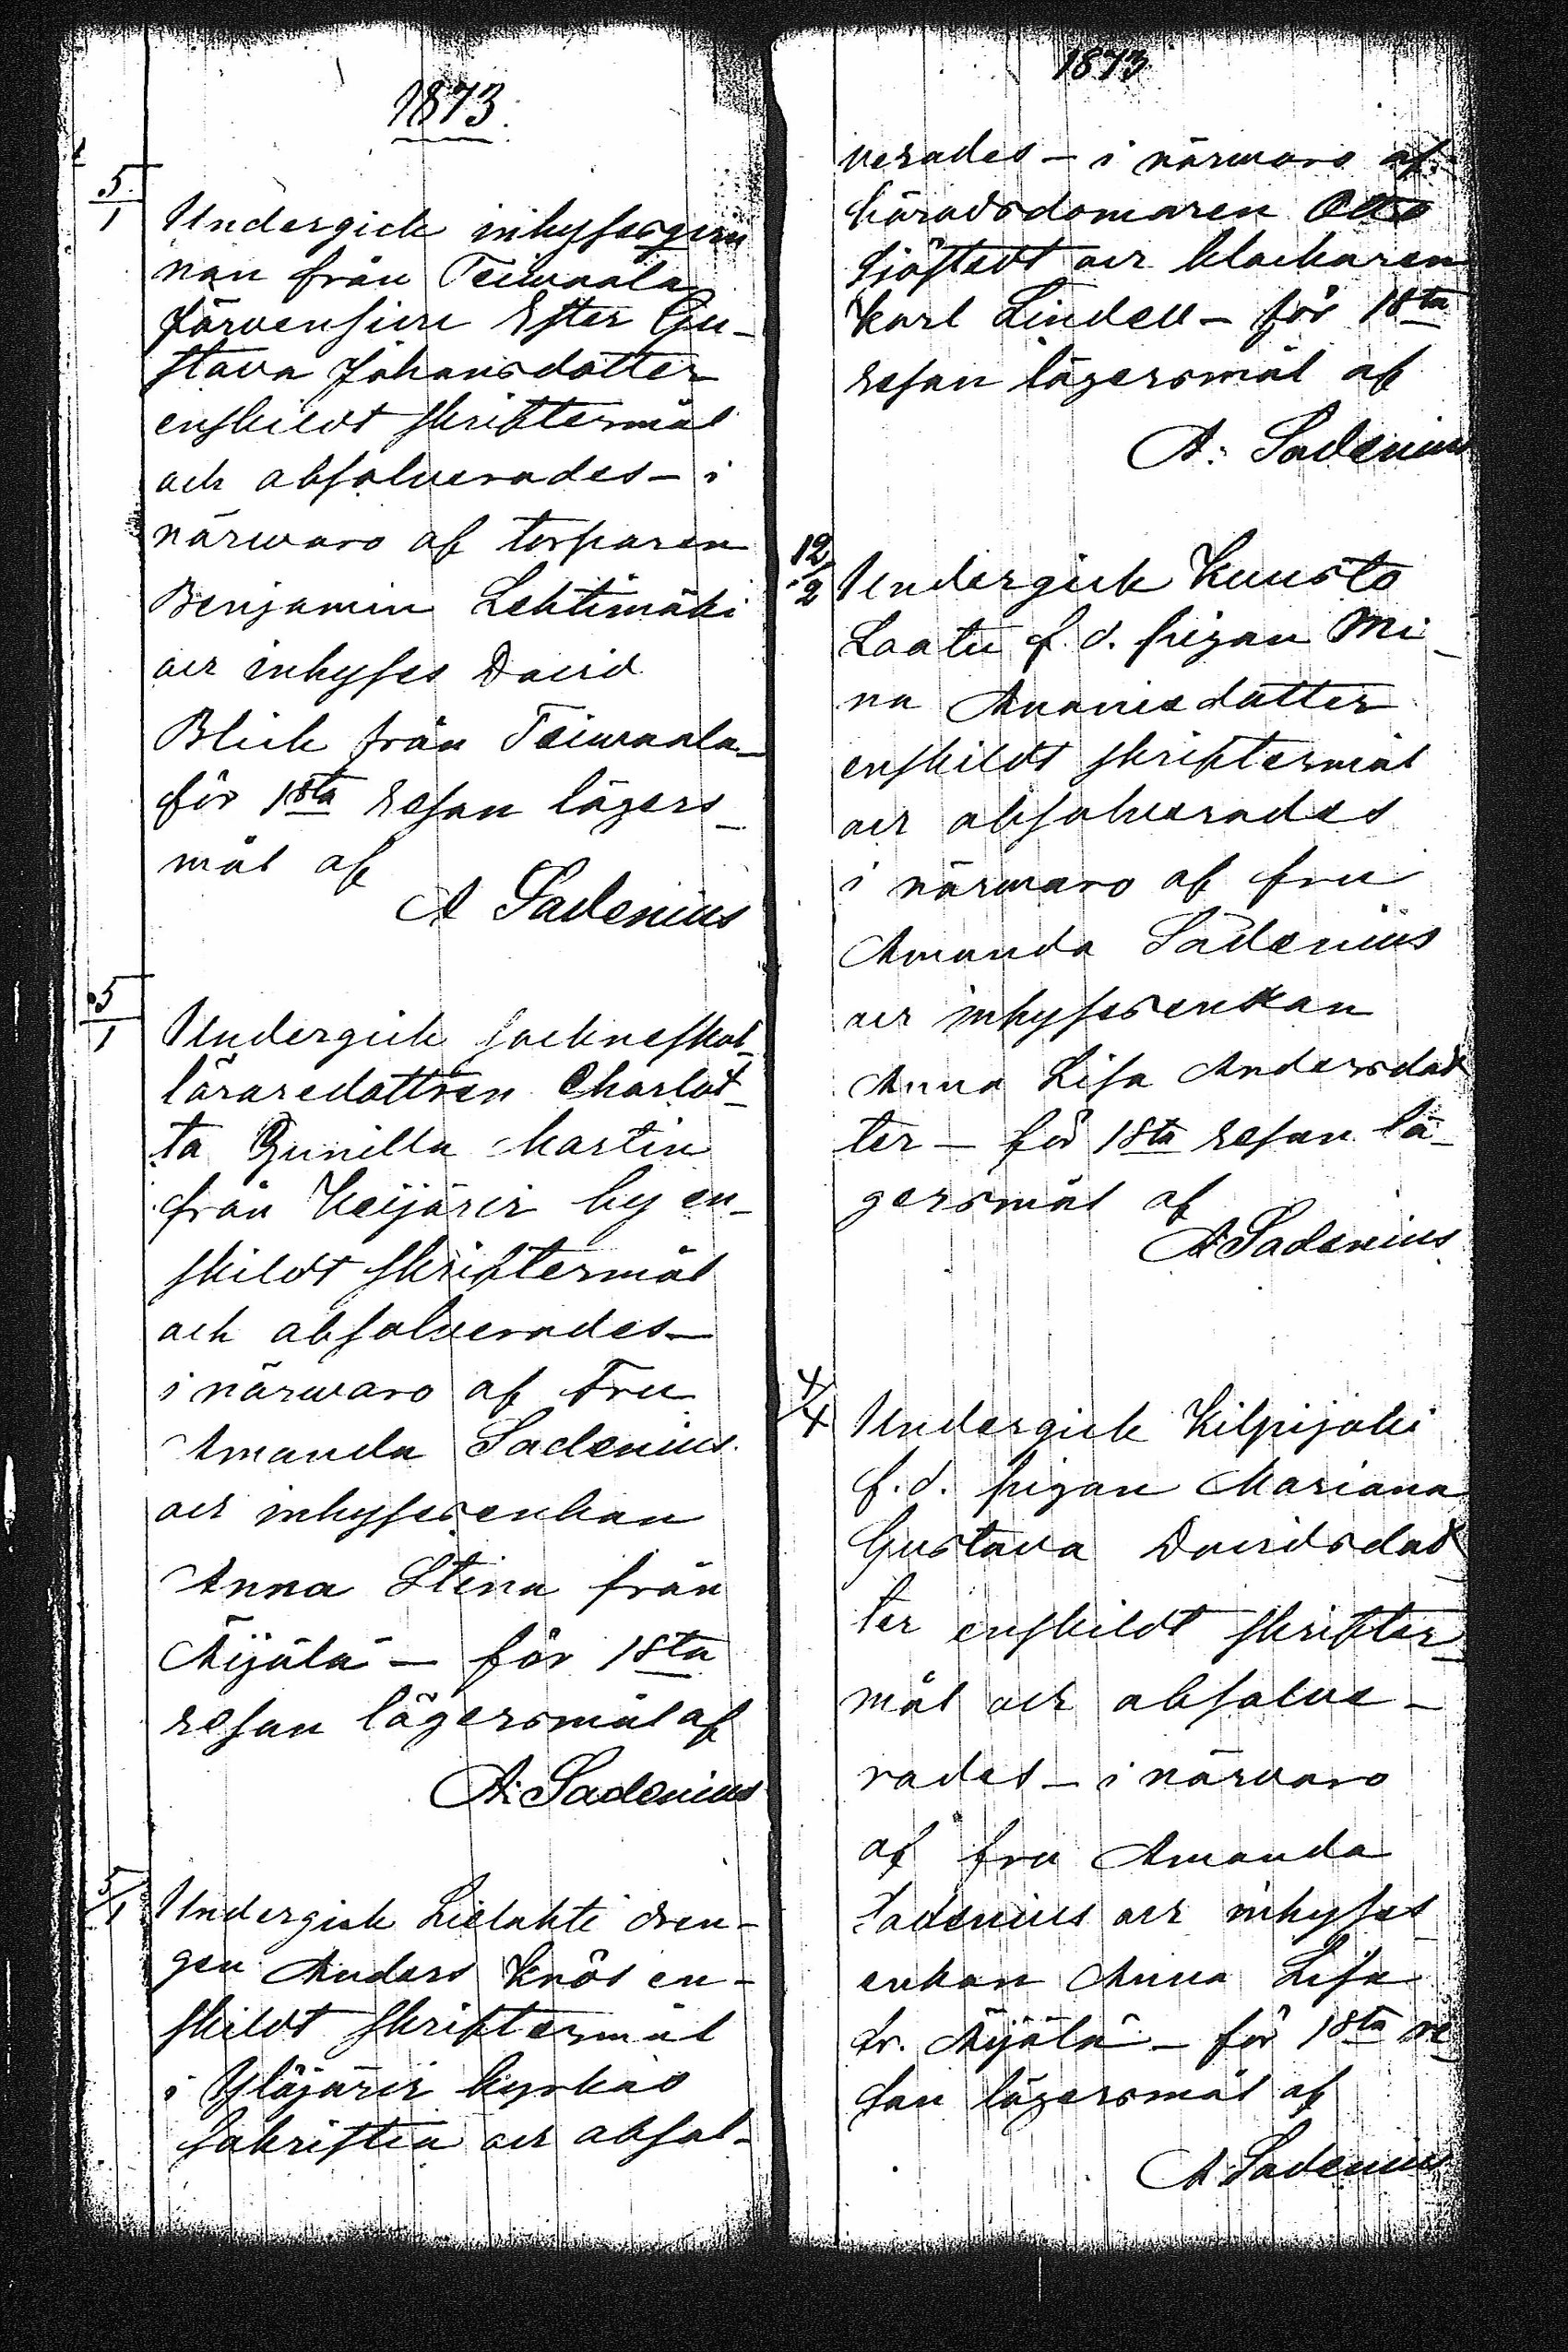 1873.
5/1
Undergick inhysesqvin
nan från Teiwaala
Järvensivu Ester Gu-
stava Johansdotter
enskildt skriftermål
och absolverades - i
närwaro af torparen
Benjamin Lehtimäki
och inhyses David
Blick från Teiwaala
för 1sta resan lägers-
mål af
A Sadenius
5/1
Undergick sockneskol-
läraredottren Charlot-
ta Gunilla Martin
från Keijärvi by en-
skildt skriftermål
och absolverades -
i närwaro af Fru
Amanda Sadenius
och inhysesenkan
Anna Stina från
Äijälä - för 1sta
resan lägersmål af
A. Sadenius
5/1
Undergick Lielahti dren-
gen Anders Knös en-
skildt skriftermål
i Ylöjärvi kyrkas
sakristia och absol-
1873
verades - i närwaro af
häradsdomaren Otto
Sjöstedt och klockaren
Karl Lindell - för 1sta
resan lägersmål af
A. Sadenius
12/2
Undergick Kuusto
Laatu f. d. pigan Mi-
na Ananiedotter
enskildt skriftermål
och absolverades
i närwaro af fru
Amanda Sadenius
och inhysesenkan
Anna Lisa Andersdot
ter - för 1sta resan lä-
gersmål af
A Sadenius
4/4
Undergick Kilpijoki
f. d. pigan Mariana
Gustava Davidsdot
ter enskildt skrifter-
mål och absolve-
rades - i närwaro
af fru Amanda
Sadenius och inhyses
enkan Anna Lisa
fr. Äijälä - för 1sta re
san lägersmål af
A Sadenius